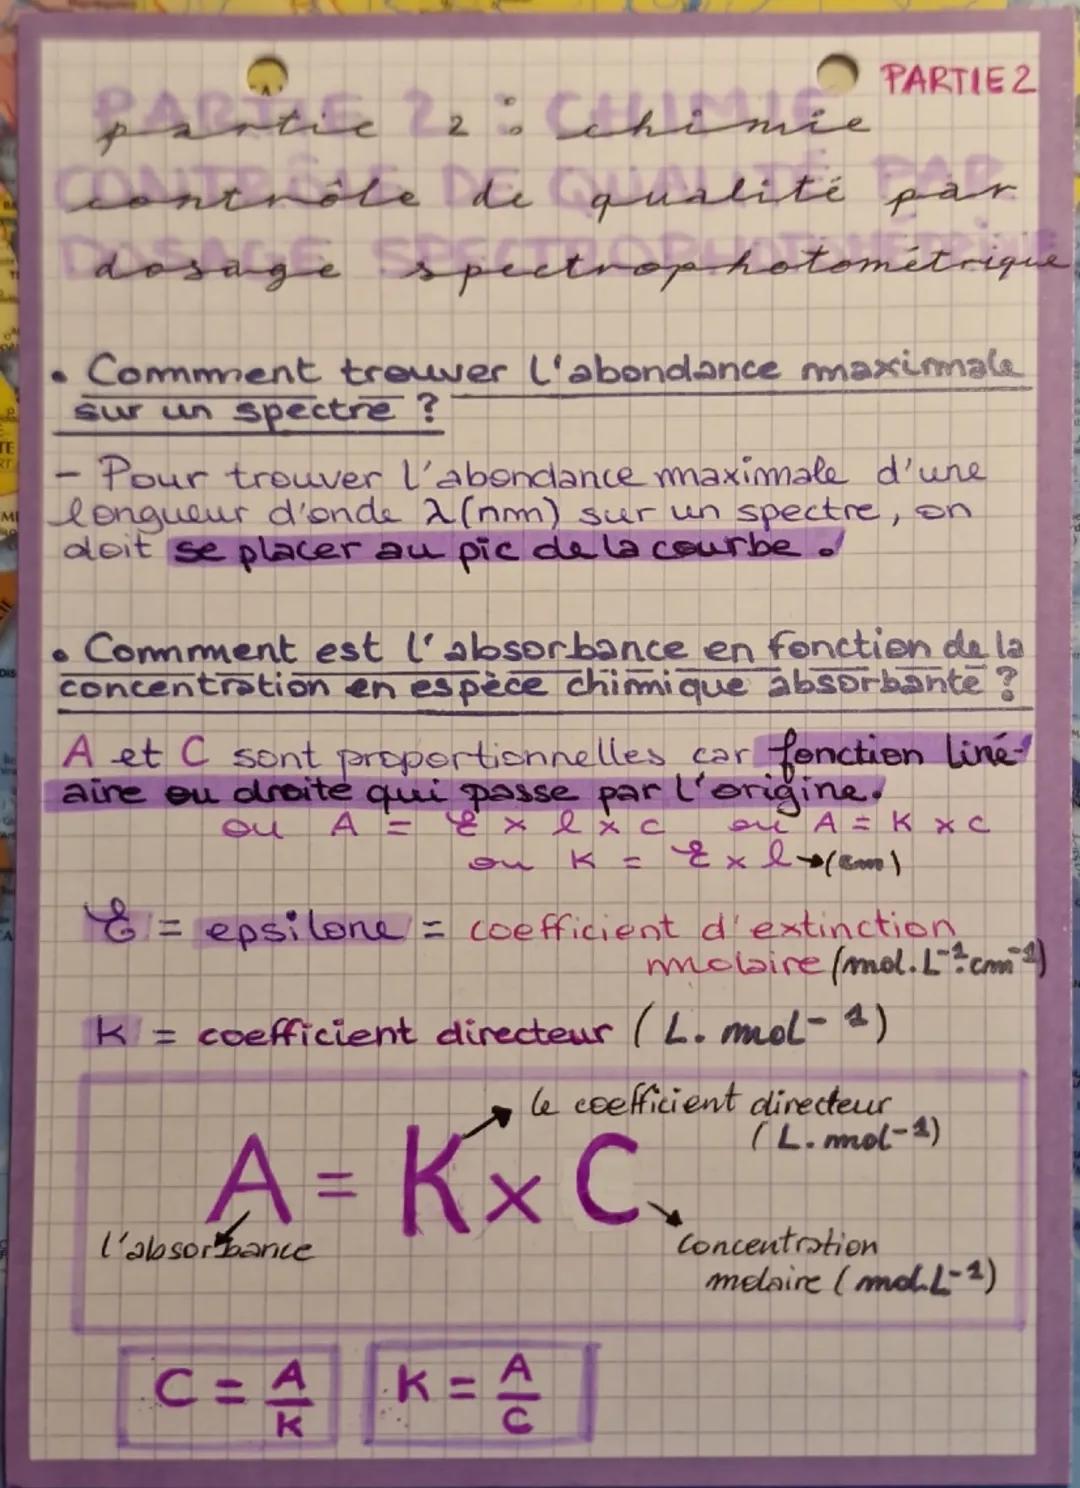 PARTIE 2
PARTIE 2 : CHIMIE
partie 2 : chimie
CONTRÔLE DE QUALITÉ PAR
contrôle de qualité par
DOSAGE SPECTROPHOTOMÉTRIQUE
dosage spectrophotométrique
• Comment trouver l'abondance maximale
sur un spectre ?
- Pour trouver l'abondance maximale d'une
longueur d'onde λ(nm) sur un spectre, on
doit se placer au pic de la courbe.
• Comment est l'absorbance en fonction de la
concentration en espèce chimique absorbante ?
A et C sont proportionnelles car fonction liné-
aire ou droite qui passe par l'origine.
ou A = Ɛ x l x c ou A = K x C
ou K = Ɛ x l → (cm)
Ɛ = epsilone = coefficient d'extinction
molaire (mol.L-1.cm-1)
K = coefficient directeur (L.mol-1)
le coefficient directeur
(L.mol-1)
A = K x C
l'absorbance
Concentration
molaire (mol.L-1)
C = A/K K = A/C